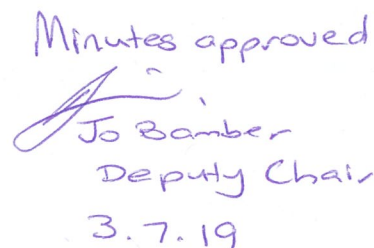 Minutes approved
Jo Bamber
Deputy Chair
3.7.19